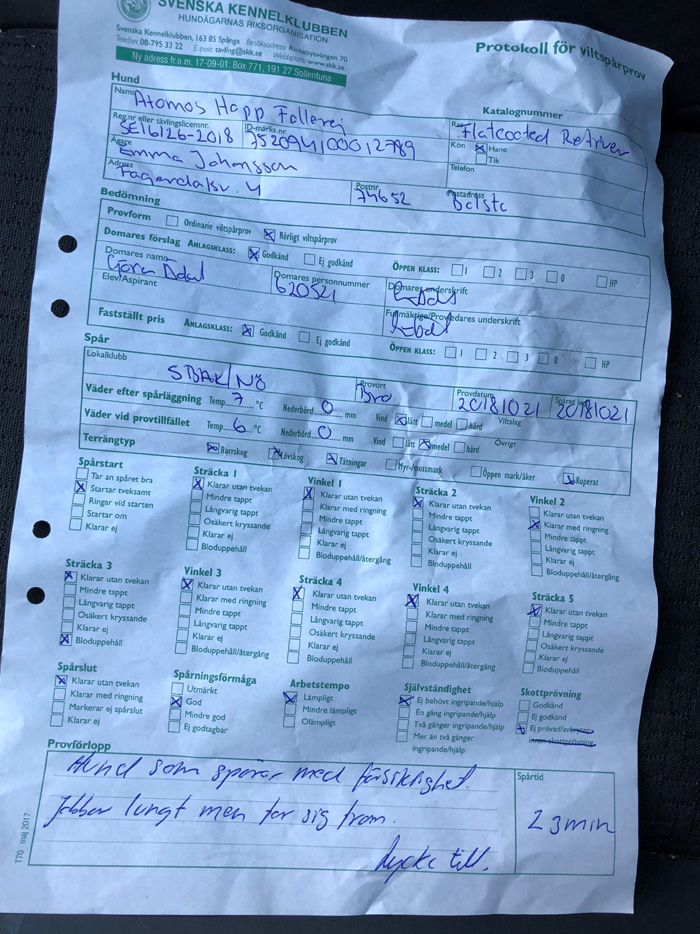 SVENSKA KENNELKLUBBEN
HUNDÄGARNAS RIKSORGANISATION
Svenska Kennelklubben, 163 85 Spånga Besöksadress Rinkebysvängen 70
Telefon: 08-795 33 22 E-post: tavling@skk.se Webbplats: www.skk.se
Ny adress fr.o.m. 17-09-01: Box 771, 191 27 Sollentuna
Protokoll för viltspårprov
Hund
Katalognummer
Namn Atomos Happ Follerej
Ras Flatcoated Retriver
Reg.nr eller tävlingslicensnr. SE16126-2018 ID-märkt nr. 752094100012789
Kön Hane
Tik
Ägare Emma Johansson
Telefon
Adress Fagerdalsv. 4 Postnr. 74652 Postadress Bålsta
Bedömning
Provform Ordinarie viltspårprov Rörligt viltspårprov
Domares förslag ANLAGSKLASS: Godkänd Ej godkänd ÖPPEN KLASS: 1 2 3 0 HP
Domares namn Göran Ådal Domares personnummer 620521 Domares underskrift
Elev/Aspirant Fullmäktige/Provledares underskrift
Fastställt pris ANLAGSKLASS: Godkänd Ej godkänd ÖPPEN KLASS: 1 2 3 0 HP
Spår
Lokalklubb SBAK/NÖ Provort Bro Provdatum 20181021 20181021
Väder efter spårläggning Temp. 7 °C Nederbörd 0 mm Vind lätt medel hård Viltslag
Väder vid provtillfället Temp. 6 °C Nederbörd 0 mm Vind lätt medel hård Övrigt
Terrängtyp Barrskog Lövskog Tätningar Myr-/mossmark Öppen mark/åker Kuperat
Spårstart
Tar an spåret bra
Startar tveksamt
Ringar vid starten
Startar om
Klarar ej
Sträcka 1
Klarar utan tvekan
Mindre tappt
Långvarig tappt
Osäkert kryssande
Klarar ej
Bloduppehåll
Vinkel 1
Klarar utan tvekan
Klarar med ringning
Mindre tappt
Långvarig tappt
Klarar ej
Bloduppehåll/återgång
Sträcka 2
Klarar utan tvekan
Mindre tappt
Långvarig tappt
Osäkert kryssande
Klarar ej
Bloduppehåll
Vinkel 2
Klarar utan tvekan
Klarar med ringning
Mindre tappt
Långvarig tappt
Klarar ej
Bloduppehåll/återgång
Sträcka 3
Klarar utan tvekan
Mindre tappt
Långvarig tappt
Osäkert kryssande
Klarar ej
Bloduppehåll
Vinkel 3
Klarar utan tvekan
Klarar med ringning
Mindre tappt
Långvarig tappt
Klarar ej
Bloduppehåll/återgång
Sträcka 4
Klarar utan tvekan
Mindre tappt
Långvarig tappt
Osäkert kryssande
Klarar ej
Bloduppehåll
Vinkel 4
Klarar utan tvekan
Klarar med ringning
Mindre tappt
Långvarig tappt
Klarar ej
Bloduppehåll/återgång
Sträcka 5
Klarar utan tvekan
Mindre tappt
Långvarig tappt
Osäkert kryssande
Klarar ej
Bloduppehåll
Spårslut
Klarar utan tvekan
Klarar med ringning
Markerar ej spårslut
Klarar ej
Spårningsförmåga
Utmärkt
God
Mindre god
Ej godtagbar
Arbetstempo
Lämpligt
Mindre lämpligt
Olämpligt
Självständighet
Ej behövt ingripande/hjälp
En gång ingripande/hjälp
Två gånger ingripande/hjälp
Mer än två gånger
ingripande/hjälp
Skottprövning
Godkänd
Ej godkänd
Ej prövad/avbrytes
innan skottprövning
Provförlopp
Spårtid
Hund som spårar med försiktighet.
Jobbar lungt men tar sig fram.
23 min
Lycka till.
170 maj 2017